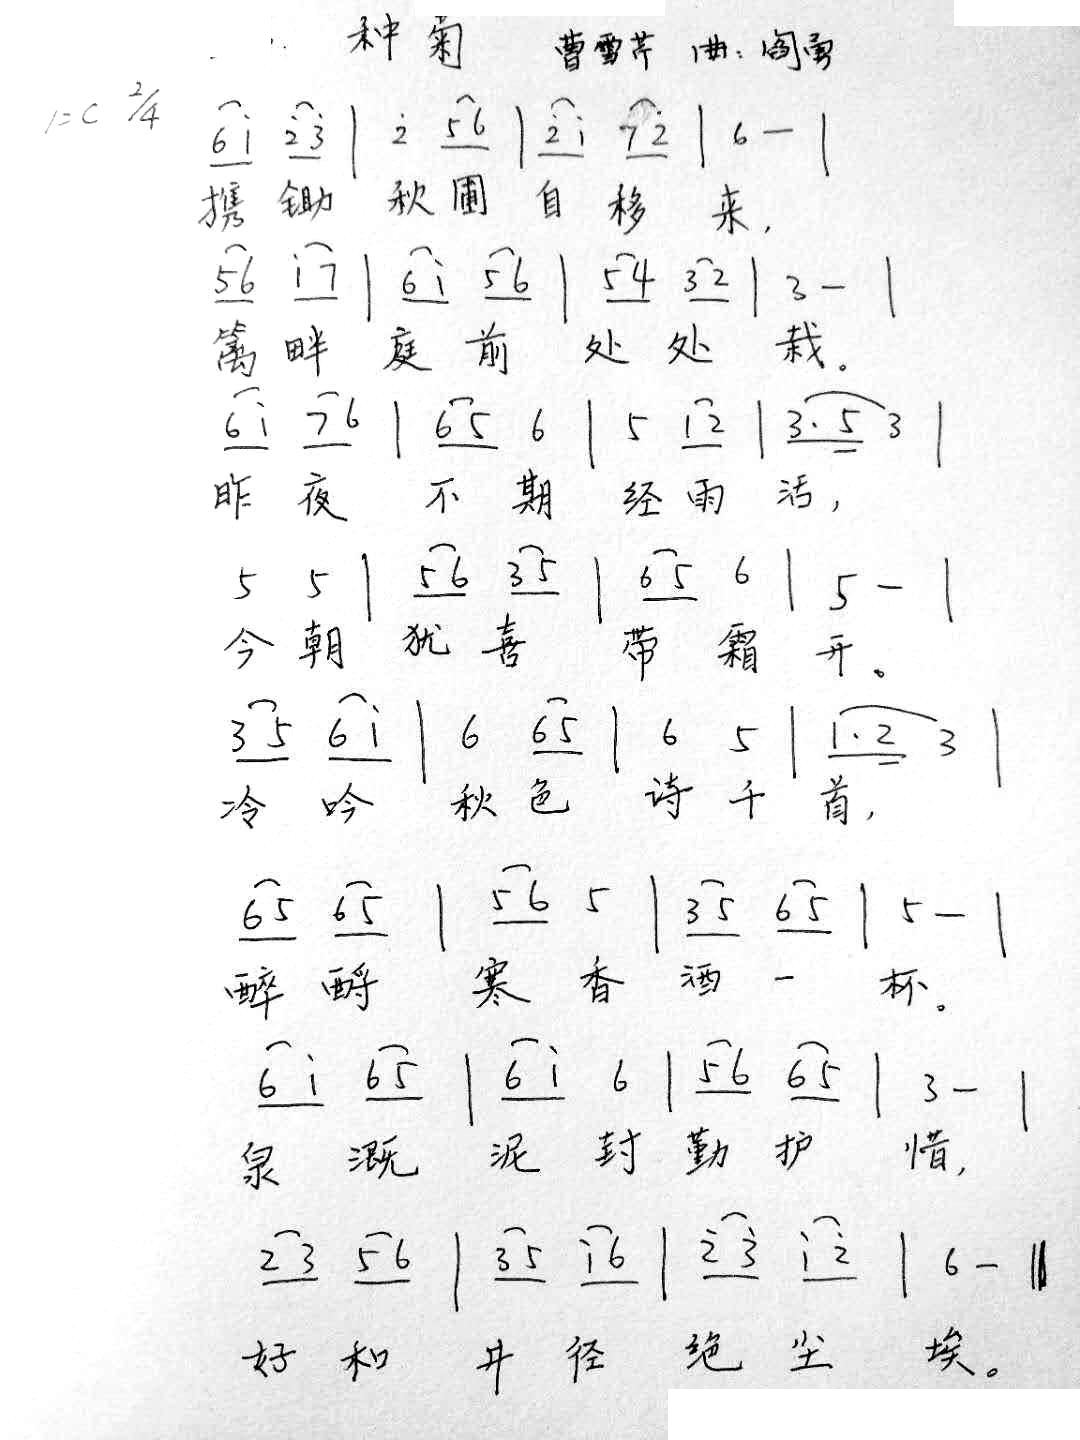 种菊 曹雪芹 曲：阎勇
1=C 2/4
6i 2̇3̇ | 2̇ 56 | 2̇i 72̇ | 6 — |
携锄 秋圃 自移 来，
56 i7 | 6i 56 | 54 32 | 3 — |
篱畔 庭前 处处 栽。
6i 76 | 65 6 | 5 12 | 3·5 3 |
昨夜 不期 经雨 活，
5 5 | 56 35 | 65 6 | 5 — |
今朝 犹喜 带霜 开。
35 6i | 6 65 | 6 5 | 1·2 3 |
冷吟 秋色 诗千 首，
65 65 | 56 5 | 35 65 | 5 — |
醉酹 寒香 酒一 杯。
6i 65 | 6i 6 | 56 65 | 3 — |
泉溉 泥封 勤护 惜，
23 56 | 35 i6 | 2̇3̇ i2̇ | 6 — ‖
好和 井径 绝尘 埃。